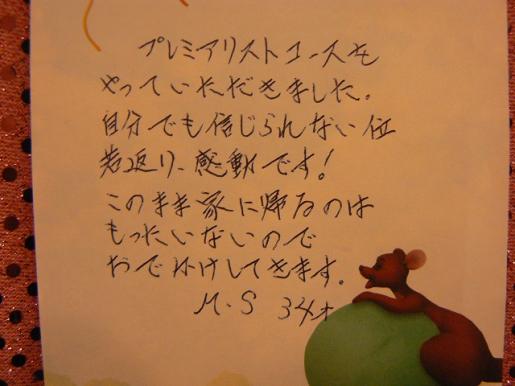 プレミアリストコースを
やっていただきました。
自分でも信じられない位
若返り、感動です!
このまま家に帰るのは
もったいないので
おでかけしてきます。
M.S 34才